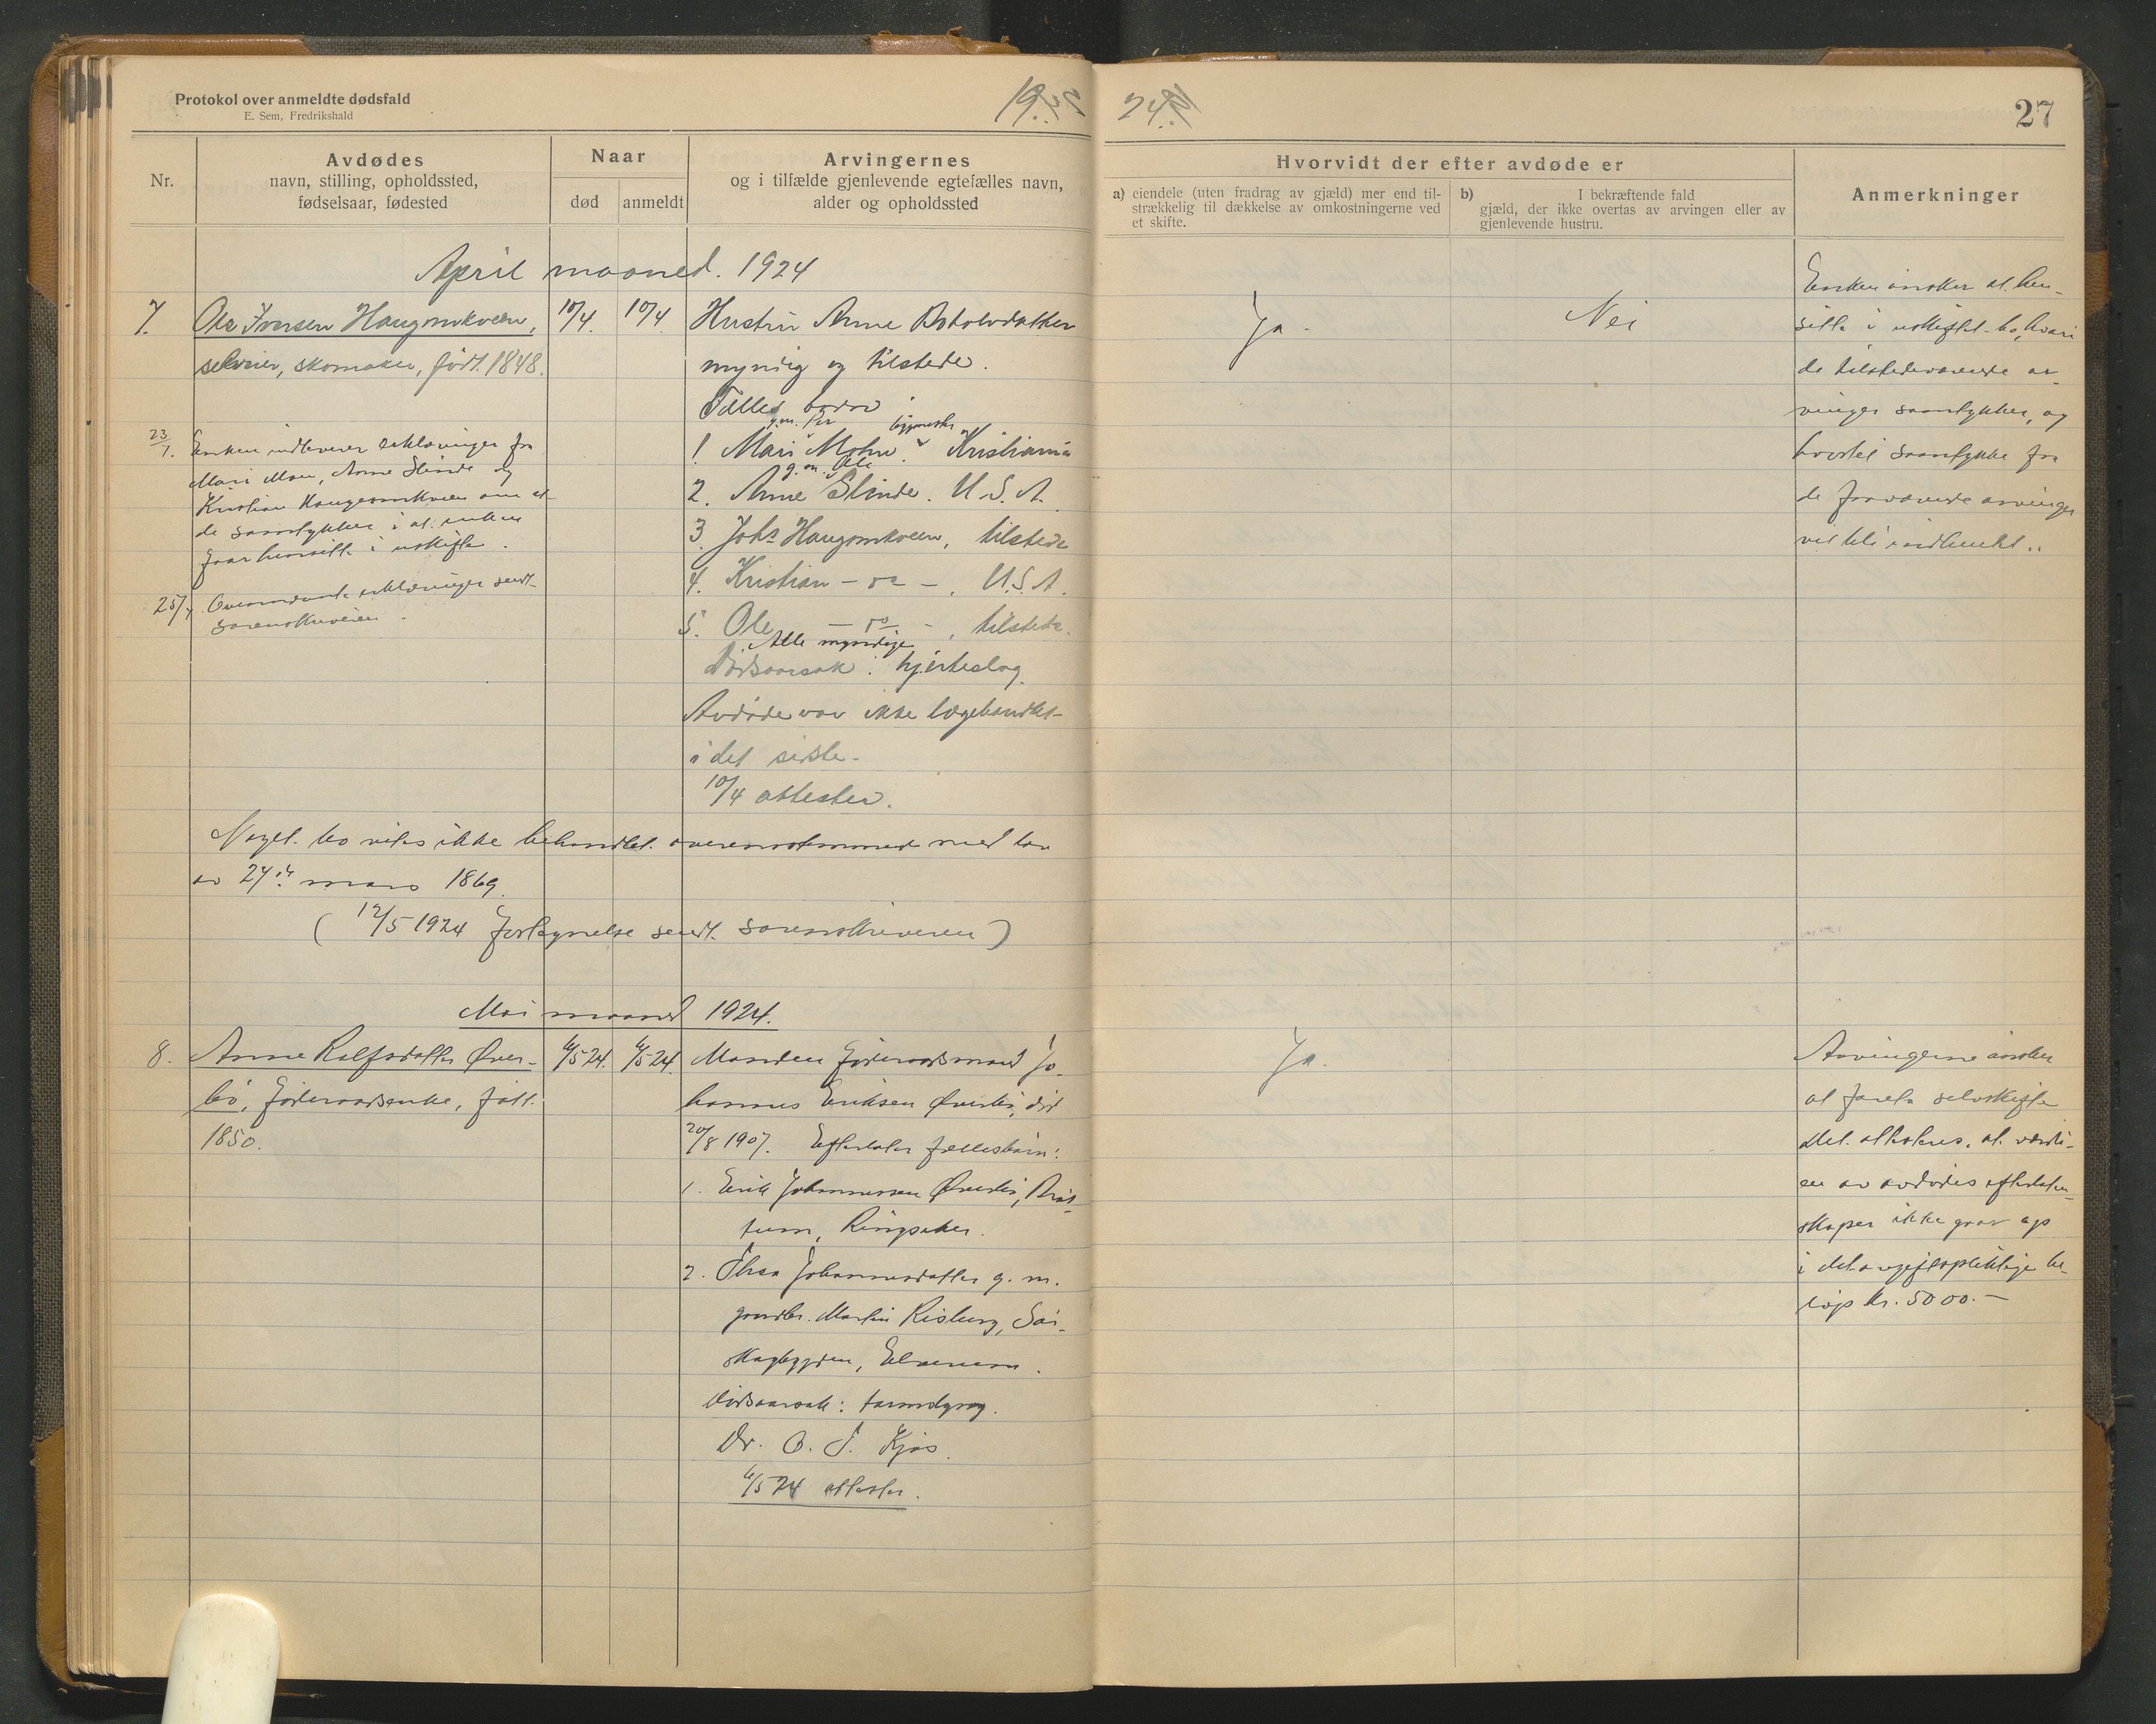 Protokol over anmeldte dødsfald
E. Sem, Fredrikshald
19
24
27
Nr.
Avdødes
navn, stilling, opholdssted,
fødselsaar, fødested
Naar
død
anmeldt
Arvingernes
og i tilfælde gjenlevende egtefælles navn,
alder og opholdssted
Hvorvidt der efter avdøde er
a) eiendele (uten fradrag av gjæld) mer end til-
strækkelig til dækkelse av omkostningerne ved
et skifte.
b) I bekræftende fald
gjæld, der ikke overtas av arvingen eller av
gjenlevende hustru.
Anmerkninger
April maaned. 1924
7. Ole Iversen Haugomkveen,
selveier, skomaker, født 1848.
10/4. 10/4
Hustru Anne
myndig og tilstede.
Fælles barn:
g.m. Per
1. Mari Mohn. Kristiania
g.m. Ole
2. Anne Slinde. U.S.A.
3. Johs Haugomkveen, tilstede
4. Kristian - do - , U.S.A.
5. Ole - do - , tilstede.
Alle myndige
Dødsaarsak: hjerteslag.
Avdøde var ikke lægebehandlet
i det sidste.
10/4 attester.
Ja.
Nei
Enken ønsker at hen-
sitte i uskiftet bo, hvori
de tilstedeværende ar-
vinger samtykker, og
hvortil samtykke fra
de fraværende arvinger
vil bli indhentet.
23/7. Enken indleverer erklæringer fra
Mari Moen, Anne Slinde og
Kristian Haugomkveen om at
de samtykker i at enken
faar hensitte i uskifte.
25/7. Ovennævnte erklæringer sendt
sorenskriveren.
Noget bo vites ikke behandlet overensstemmende med lov
av 24de mars 1869.
(12/5 1924 fortegnelse sendt sorenskriveren)
Mai maaned 1924.
8. Anne Rolfsdatter Øver-
bø, føderaadsenke, født
1850.
6/5 24. 6/5 24.
Manden føderaadsmand Jo-
hannes Eriksen Øverbø, død
20/8 1907. Efterlater fællesbarn:
1. Erik Johannessen Øverbø,
Ringsaker.
2. Johannesdatter g. m.
gaardbr. Martin Risberg, Sør-
skogbygden, Elverum.
Dødsaarsak: tarmslyng.
Dr. O. T. Kjos.
6/5 24 attester.
Ja.
Arvingerne ønsker
at foreta selvskifte
Det attesteres, at værdi-
en av avdødes efterlaten-
skaper ikke gaar op
i det avgiftspliktige be-
løp kr. 5000.-